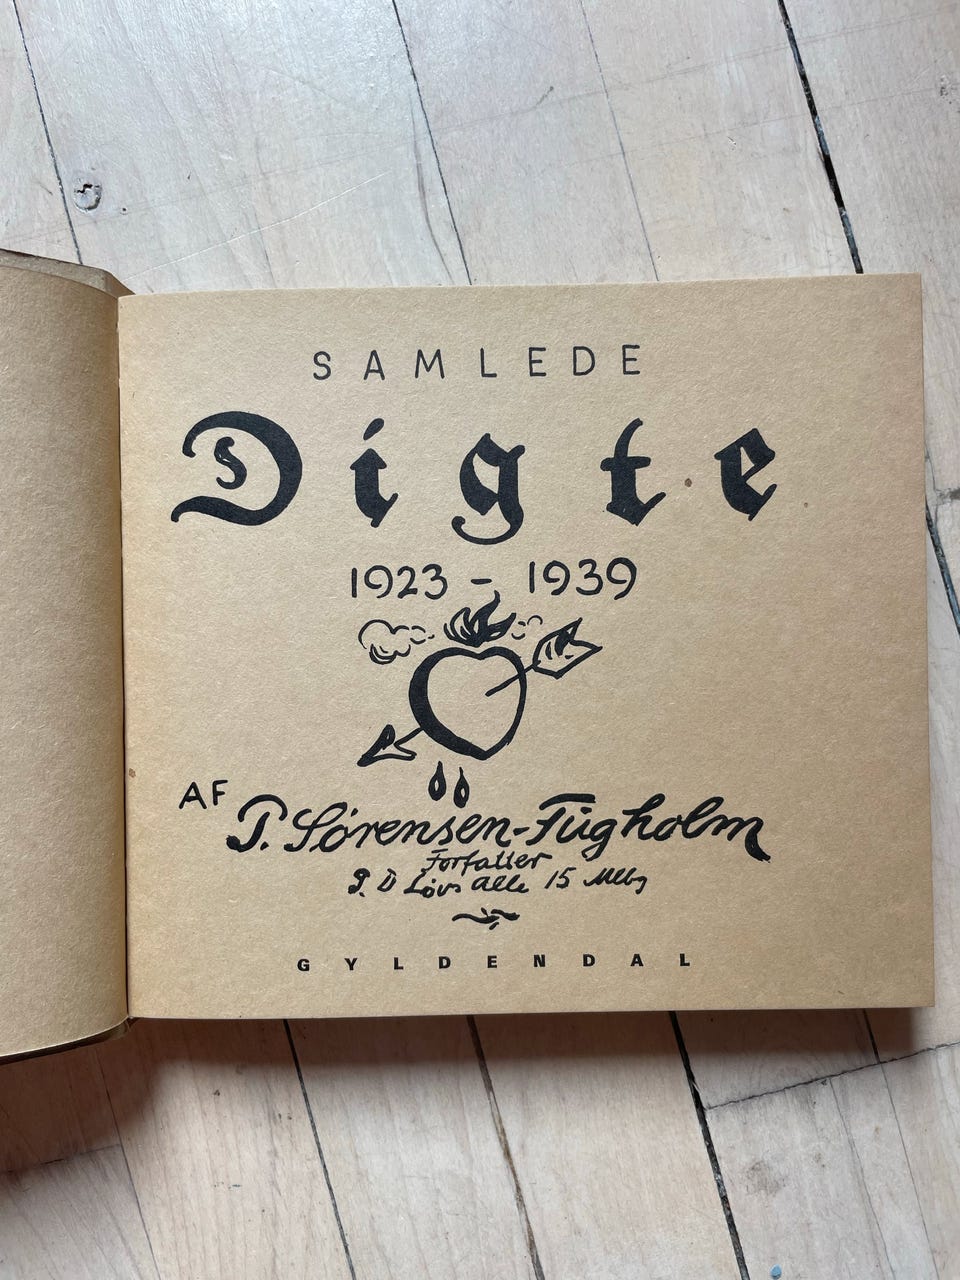 SAMLEDE
Digte
1923 - 1939
AF P. Sørensen-Fugholm
Forfatter
P. D Løvs alle 15
GYLDENDAL